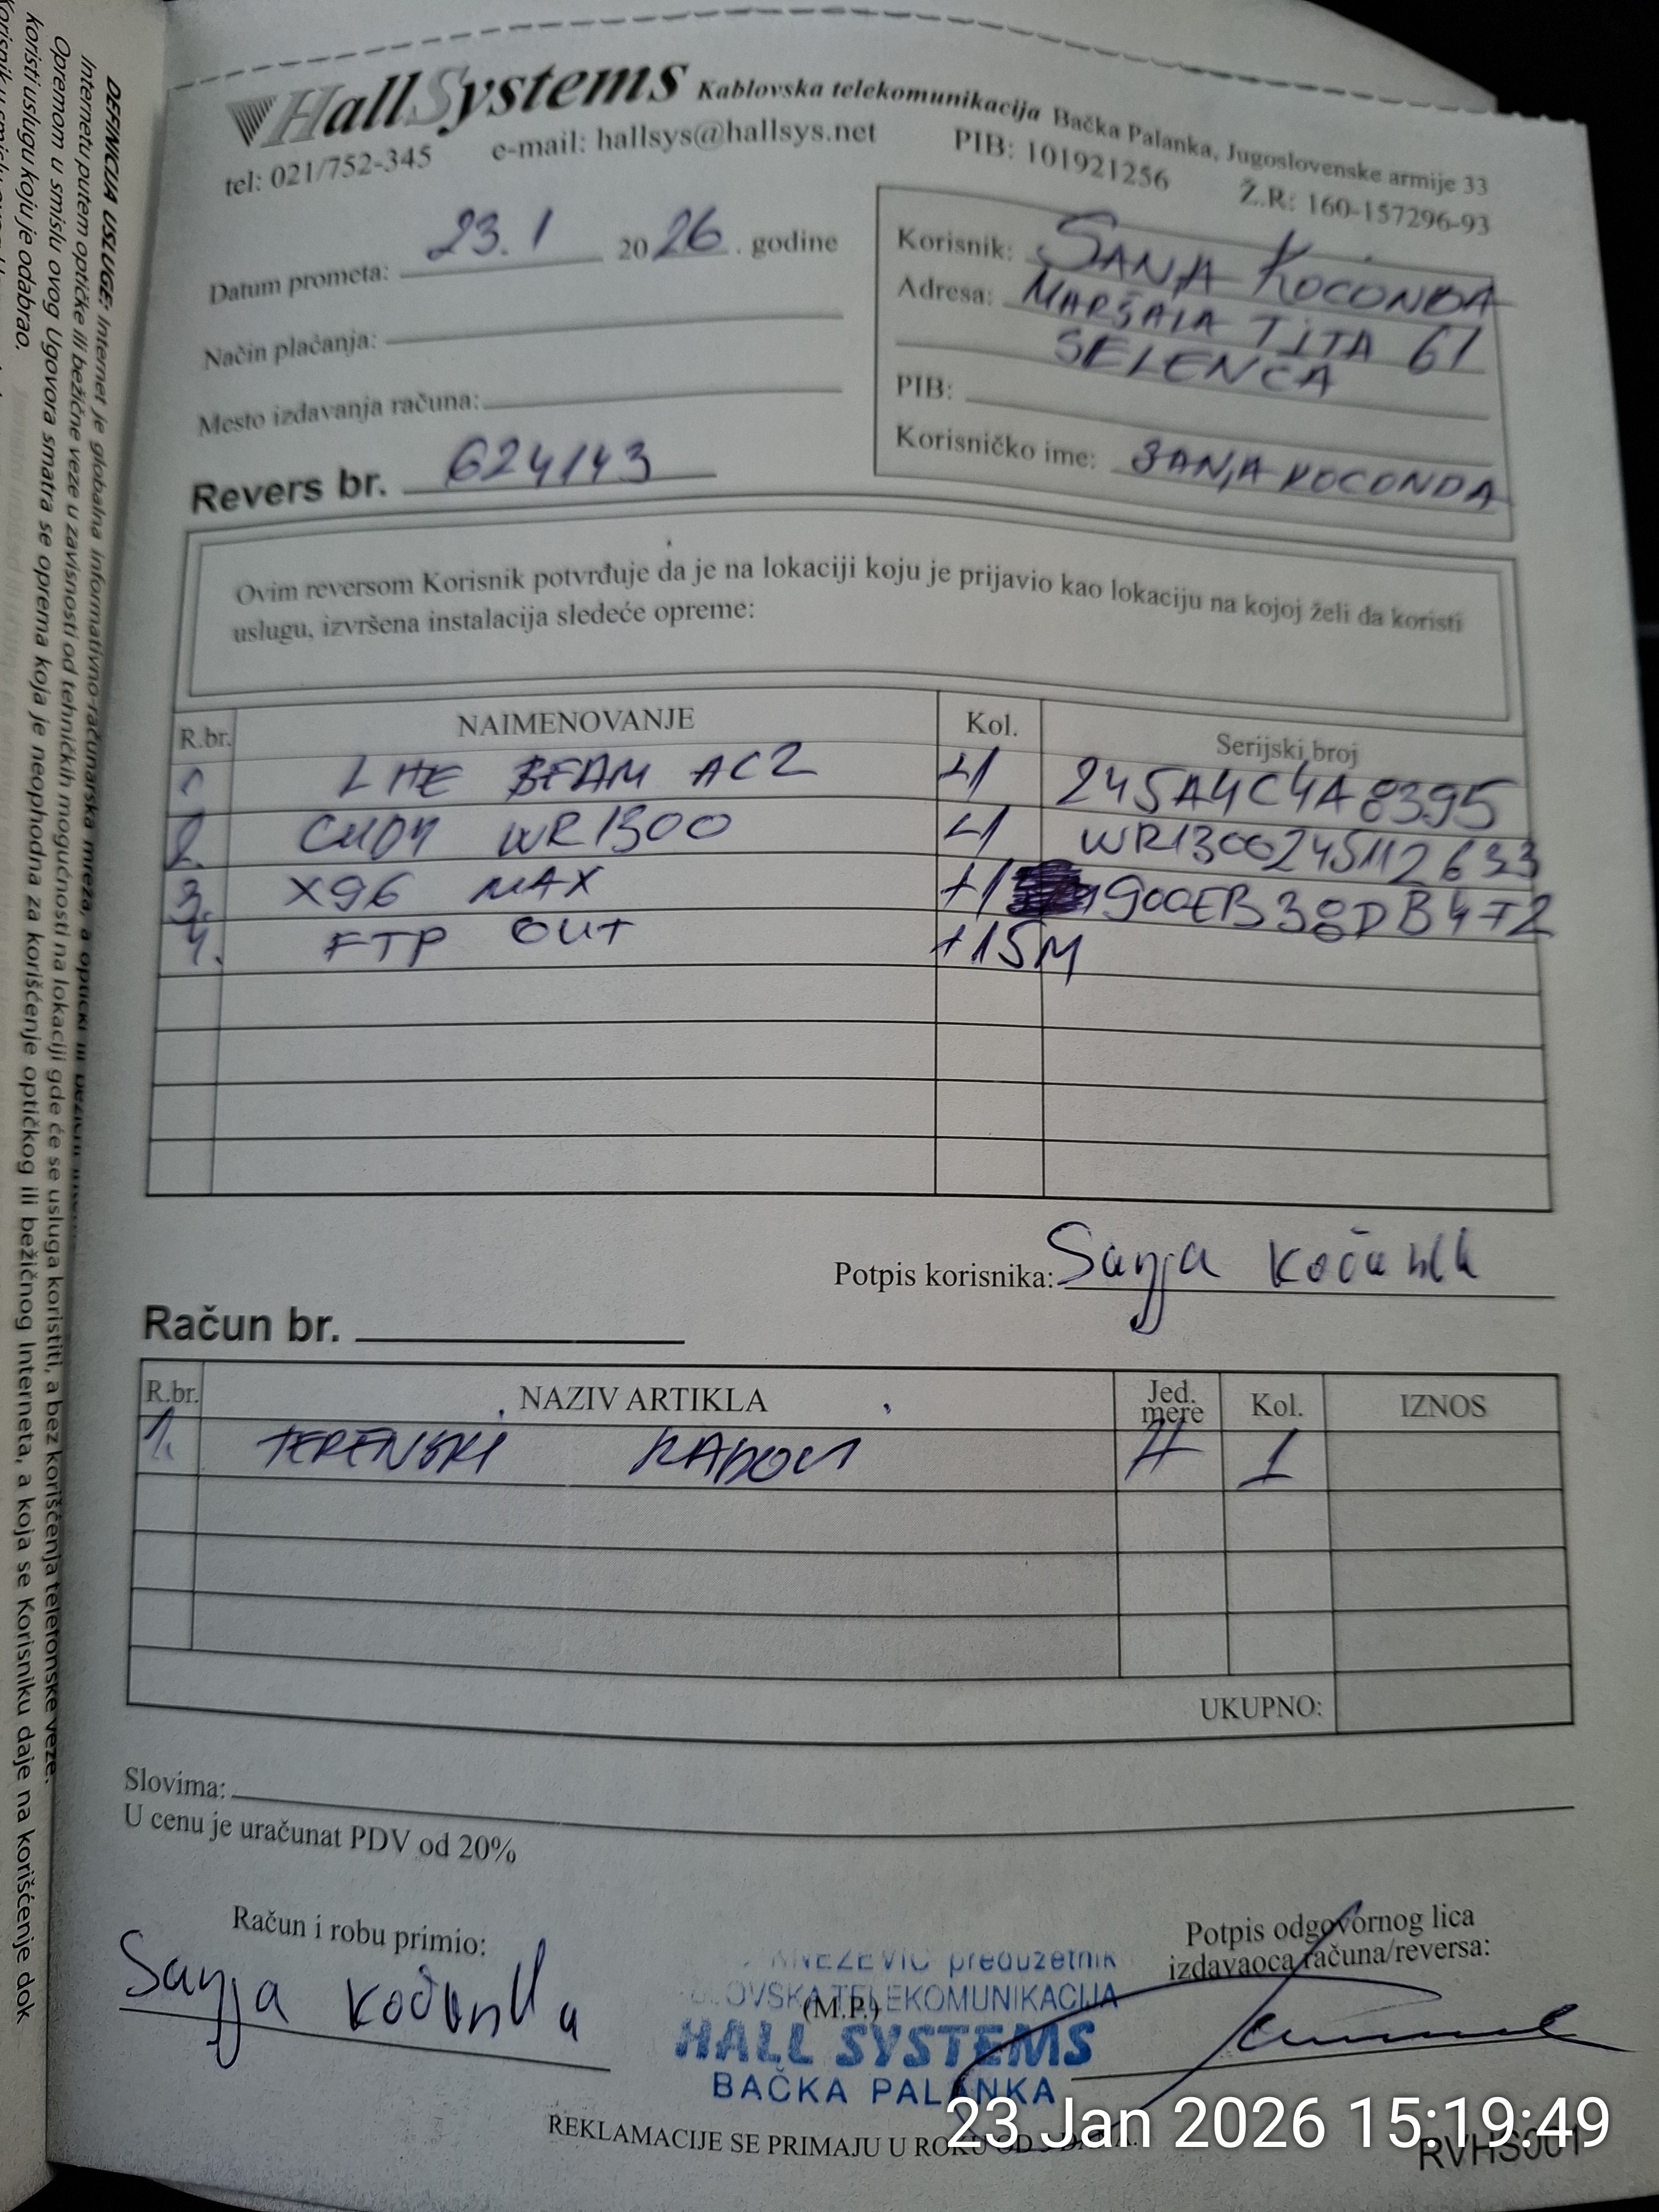 HallSystems Kablovska telekomunikacija Bačka Palanka, Jugoslovenske armije 33
tel: 021/752-345 e-mail: hallsys@hallsys.net PIB: 101921256 Ž.R: 160-157296-93
Datum prometa: 23.1 2026. godine
Način plaćanja:
Mesto izdavanja računa:
Revers br. 624143
Korisnik: SANJA KOCONDA
Adresa: MARŠALA TITA 61
SELENCA
PIB:
Korisničko ime: SANJA KOCONDA
Ovim reversom Korisnik potvrđuje da je na lokaciji koju je prijavio kao lokaciju na kojoj želi da koristi
uslugu, izvršena instalacija sledeće opreme:
R.br. NAIMENOVANJE Kol. Serijski broj
1 LITE BEAM AC2 +1 245A4C4A8395
2. CUDY WR1300 +1 WR1300245112633
3. X96 MAX +1 900EB38DB472
4. FTP OUT +15M
Potpis korisnika: Sanja
Račun br.
R.br. NAZIV ARTIKLA Jed. mere Kol. IZNOS
1. TERENSKI RADOVI H 1
UKUPNO:
Slovima:
U cenu je uračunat PDV od 20%
Račun i robu primio:
Sanja
Potpis odgovornog lica
izdavaoca računa/reversa:
preduzetnik
TELEKOMUNIKACIJA
(M.P.)
HALL SYSTEMS
BAČKA PALANKA
REKLAMACIJE SE PRIMAJU U ROKU OD
RVHS001
23 Jan 2026 15:19:49
DEFINICIJA USLUGE: Internet je globalna informativno-računarska mreža, a optički ili
Internetu putem optičke ili bežične veze u zavisnosti od tehničkih mogućnosti na lokaciji gde će se usluga koristiti, a bez korišćenja telefonske veze.
Opremom u smislu ovog Ugovora smatra se oprema koja je neophodna za korišćenje optičkog ili bežičnog Interneta, a koja se Korisniku daje na korišćenje dok
koristi uslugu koju je odabrao.